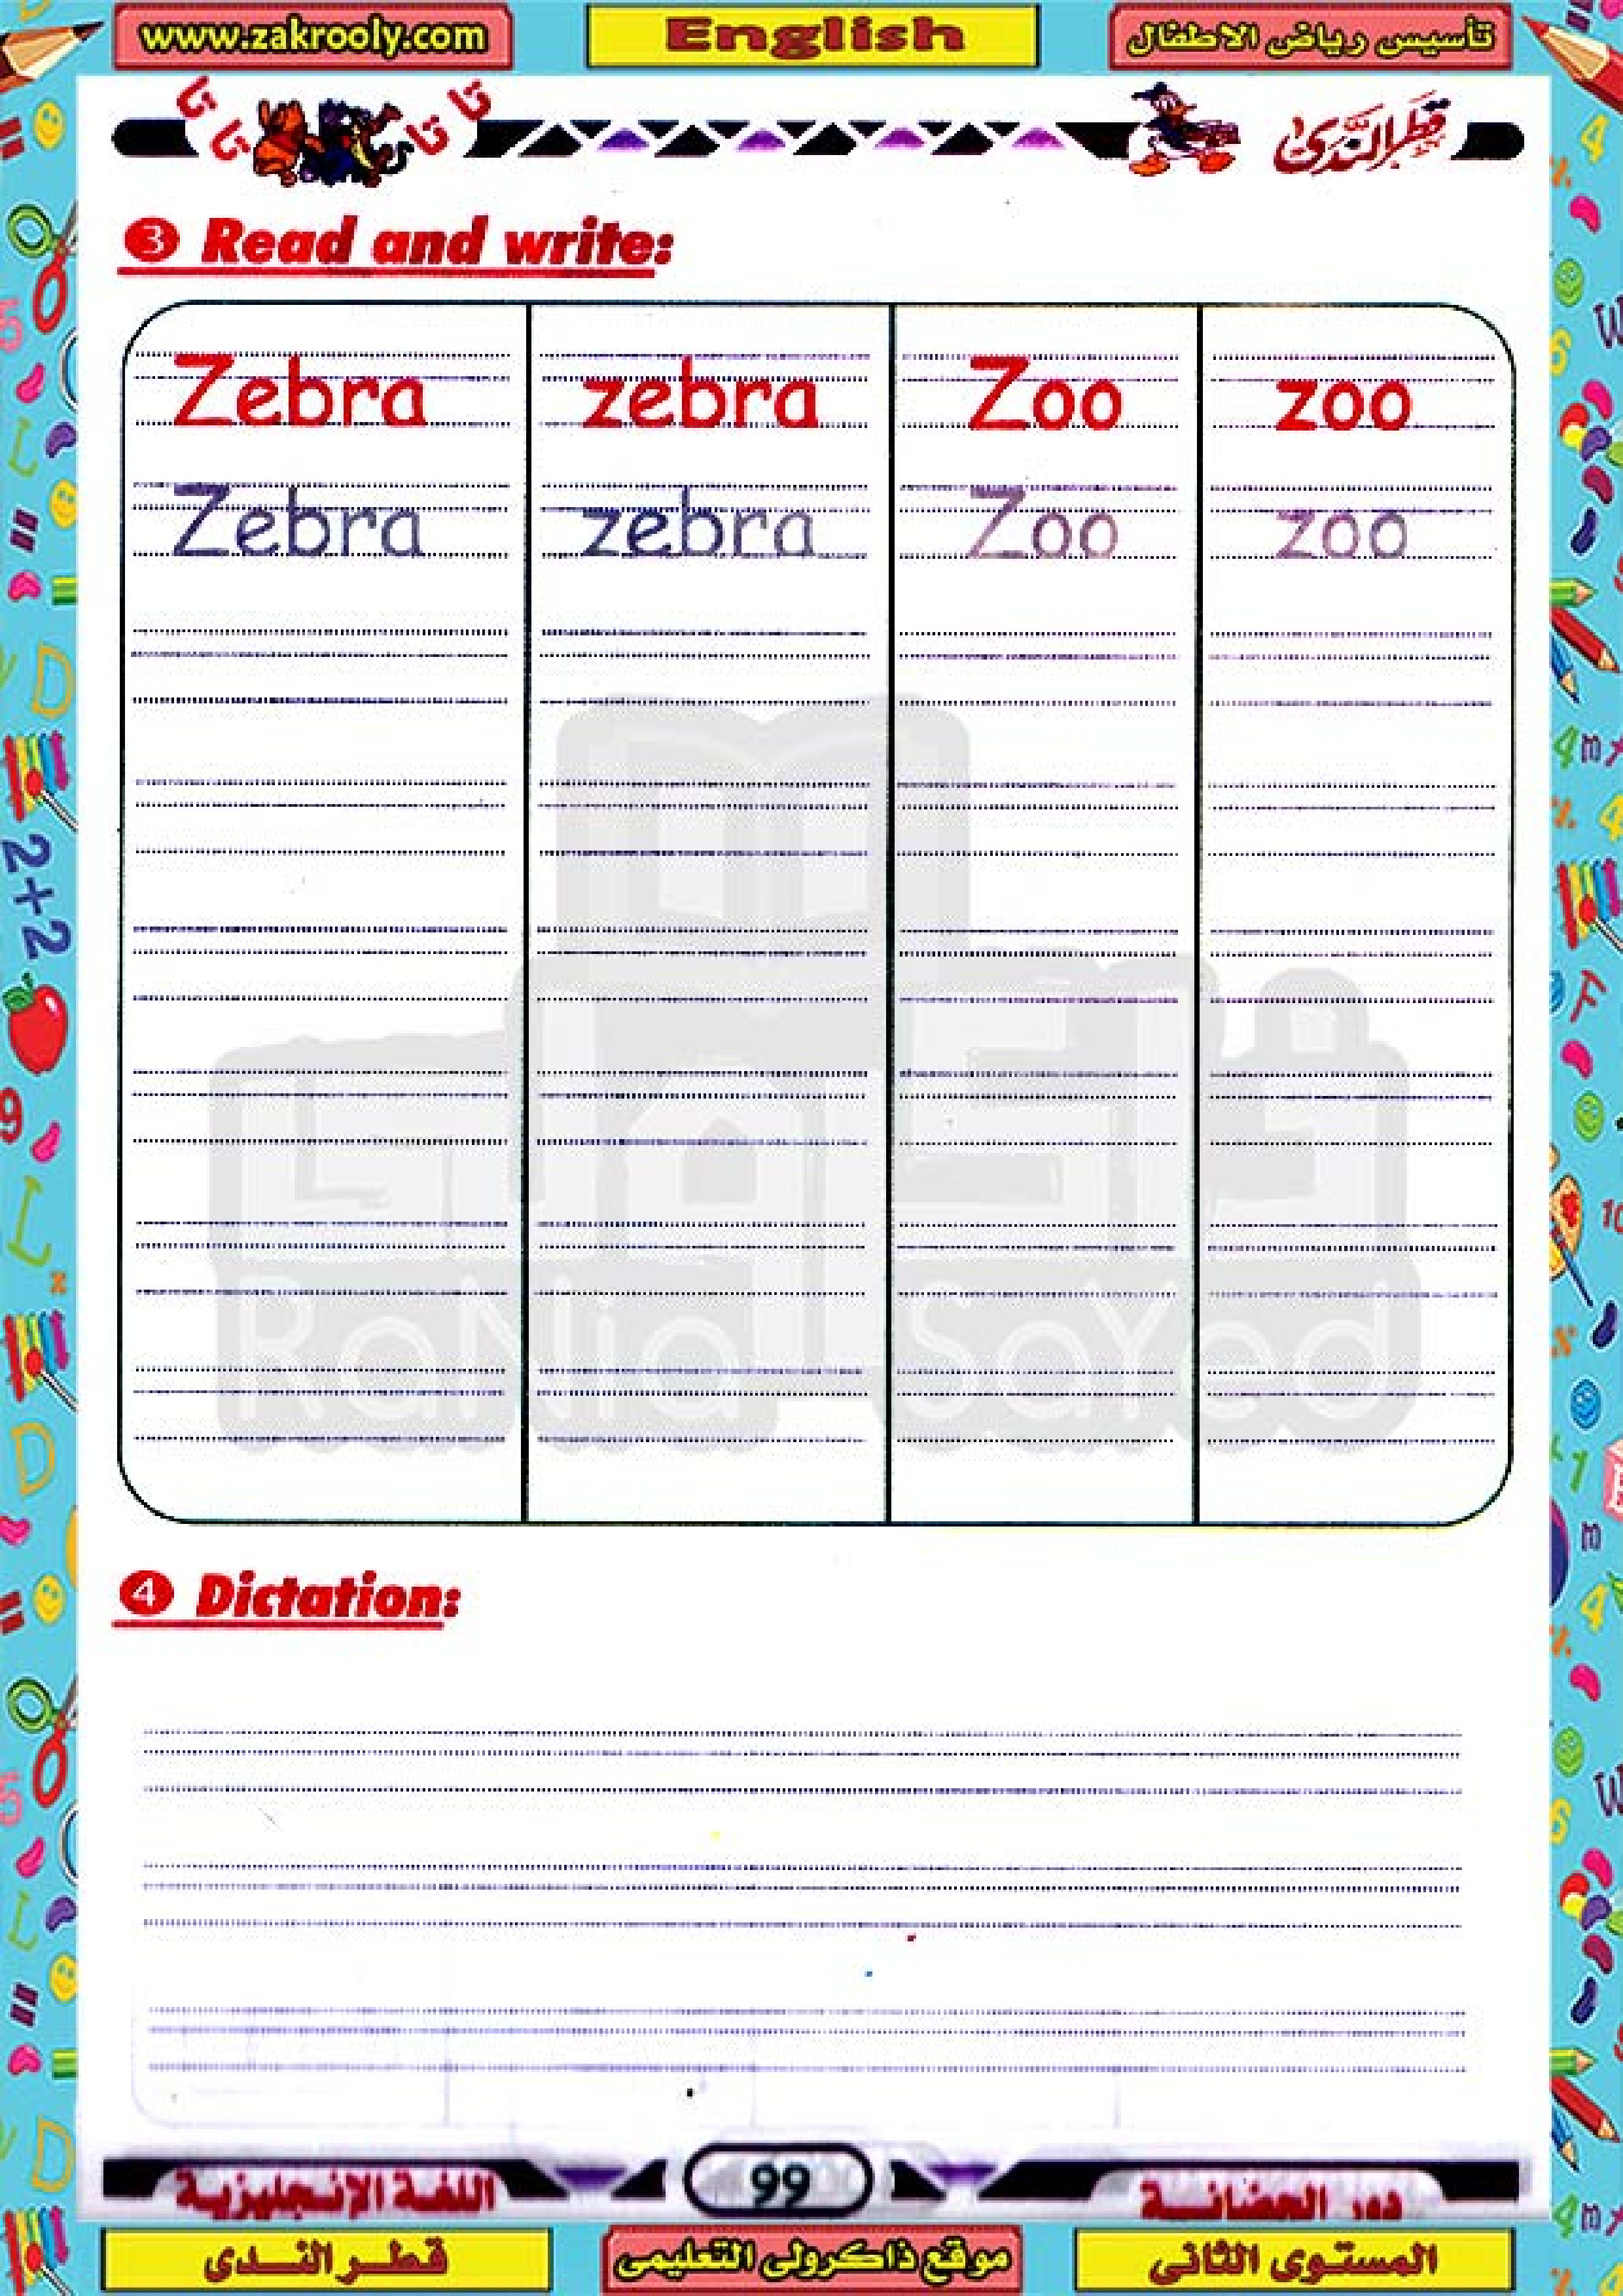 www.zakrooly.com English تأسيس رياض الاطفال
تا تا تا تا قطر الندى
3 Read and write:
Zebra zebra Zoo zoo
Zebra zebra Zoo zoo
RaNia SaYed
4 Dictation:
اللغة الإنجليزية 99 دور الحضانة
قطر الندى موقع ذاكرولى التعليمى المستوى الثانى